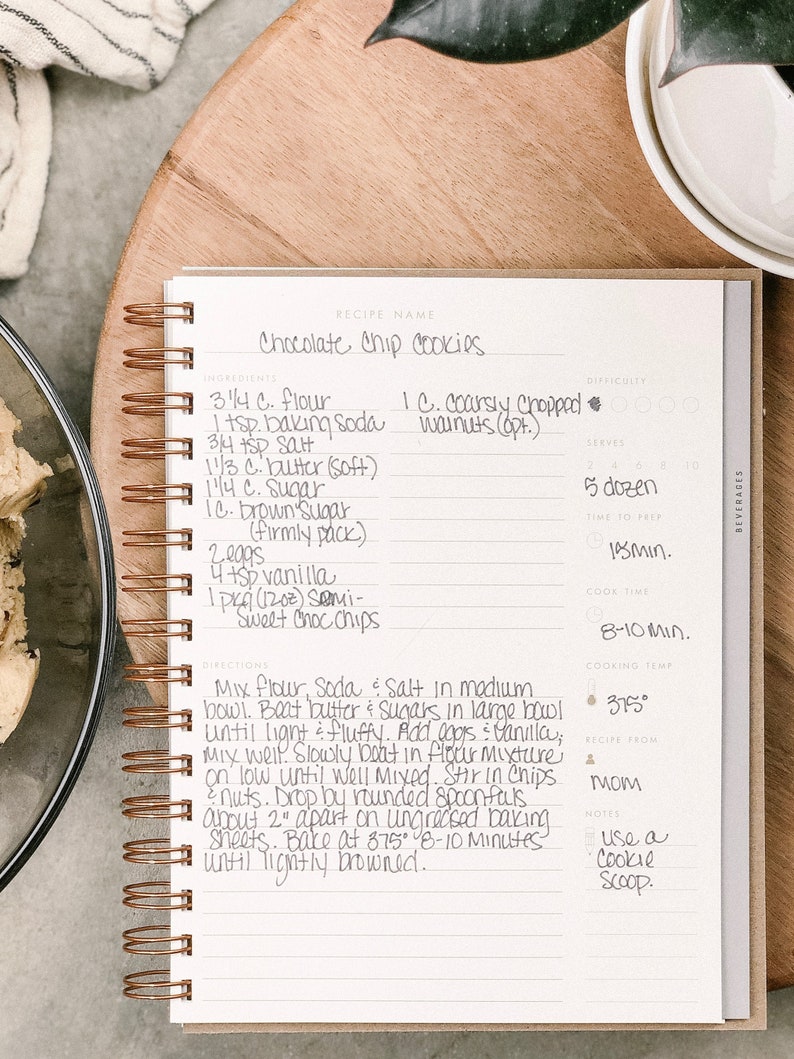 RECIPE NAME
Chocolate Chip Cookies
INGREDIENTS
3 1/4 C. flour
1 tsp. baking soda
3/4 tsp salt
1 1/3 C. butter (soft)
1 1/4 C. Sugar
1 C. brown sugar
(firmly pack)
2 eggs
4 tsp vanilla
1 pkg (12oz) Semi-
Sweet Choc Chips
1 C. coarsly chopped
walnuts (opt.)
DIFFICULTY
SERVES
2 4 6 8 10
5 dozen
TIME TO PREP
15 min.
COOK TIME
8-10 min.
COOKING TEMP
375°
RECIPE FROM
Mom
NOTES
Use a
Cookie
Scoop.
DIRECTIONS
Mix flour, soda & salt in medium
bowl. Beat butter & sugars in large bowl
until light & fluffy. Add eggs & vanilla,
mix well. Slowly beat in flour mixture
on low until well mixed. Stir in chips
& nuts. Drop by rounded spoonfuls
about 2" apart on ungreased baking
sheets. Bake at 375° 8-10 minutes
until lightly browned.
BEVERAGES